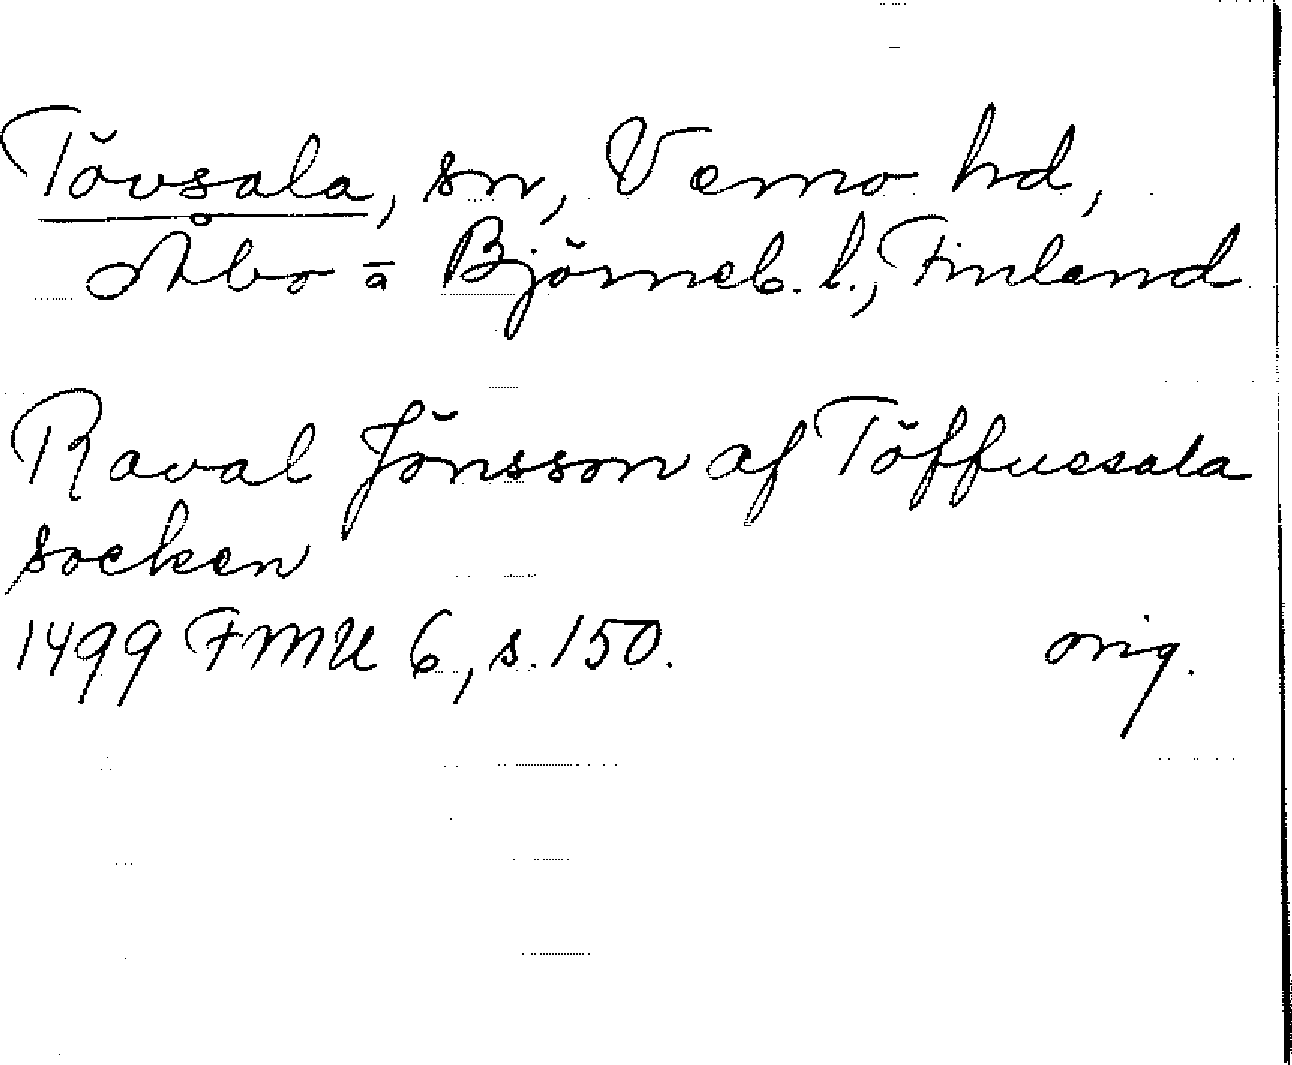 Tövsala, sn, Vemo hd,
Åbo o Björneb. l., Finland
Raval Jönsson af Töffuesala
socken
1499 FMU 6, s. 150. orig.